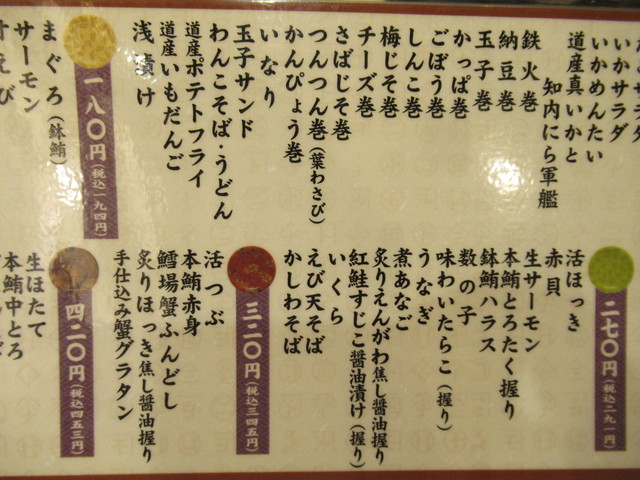 いかサラダ
いかめんたい
道産真いかと
知内にら軍艦
鉄火巻
納豆巻
玉子巻
かっぱ巻
ごぼう巻
しんこ巻
梅じそ巻
チーズ巻
さばじそ巻
つんつん巻（葉わさび）
かんぴょう巻
いなり
玉子サンド
わんこそば・うどん
道産ポテトフライ
道産いもだんご
浅漬け
一八〇円（税込一九四円）
まぐろ（鉢鮪）
サーモン
甘えび
二七〇円（税込二九一円）
活ほっき
赤貝
生サーモン
本鮪とろたく握り
鉢鮪ハラス
数の子
味わいたらこ（握り）
うなぎ
煮あなご
炙りえんがわ焦し醤油握り
紅鮭すじこ醤油漬け（握り）
いくら
えび天そば
かしわそば
三二〇円（税込三四五円）
活つぶ
本鮪赤身
鱈場蟹ふんどし
炙りほっき焦し醤油握り
手仕込み蟹グラタン
四二〇円（税込四五三円）
生ほたて
本鮪中とろ